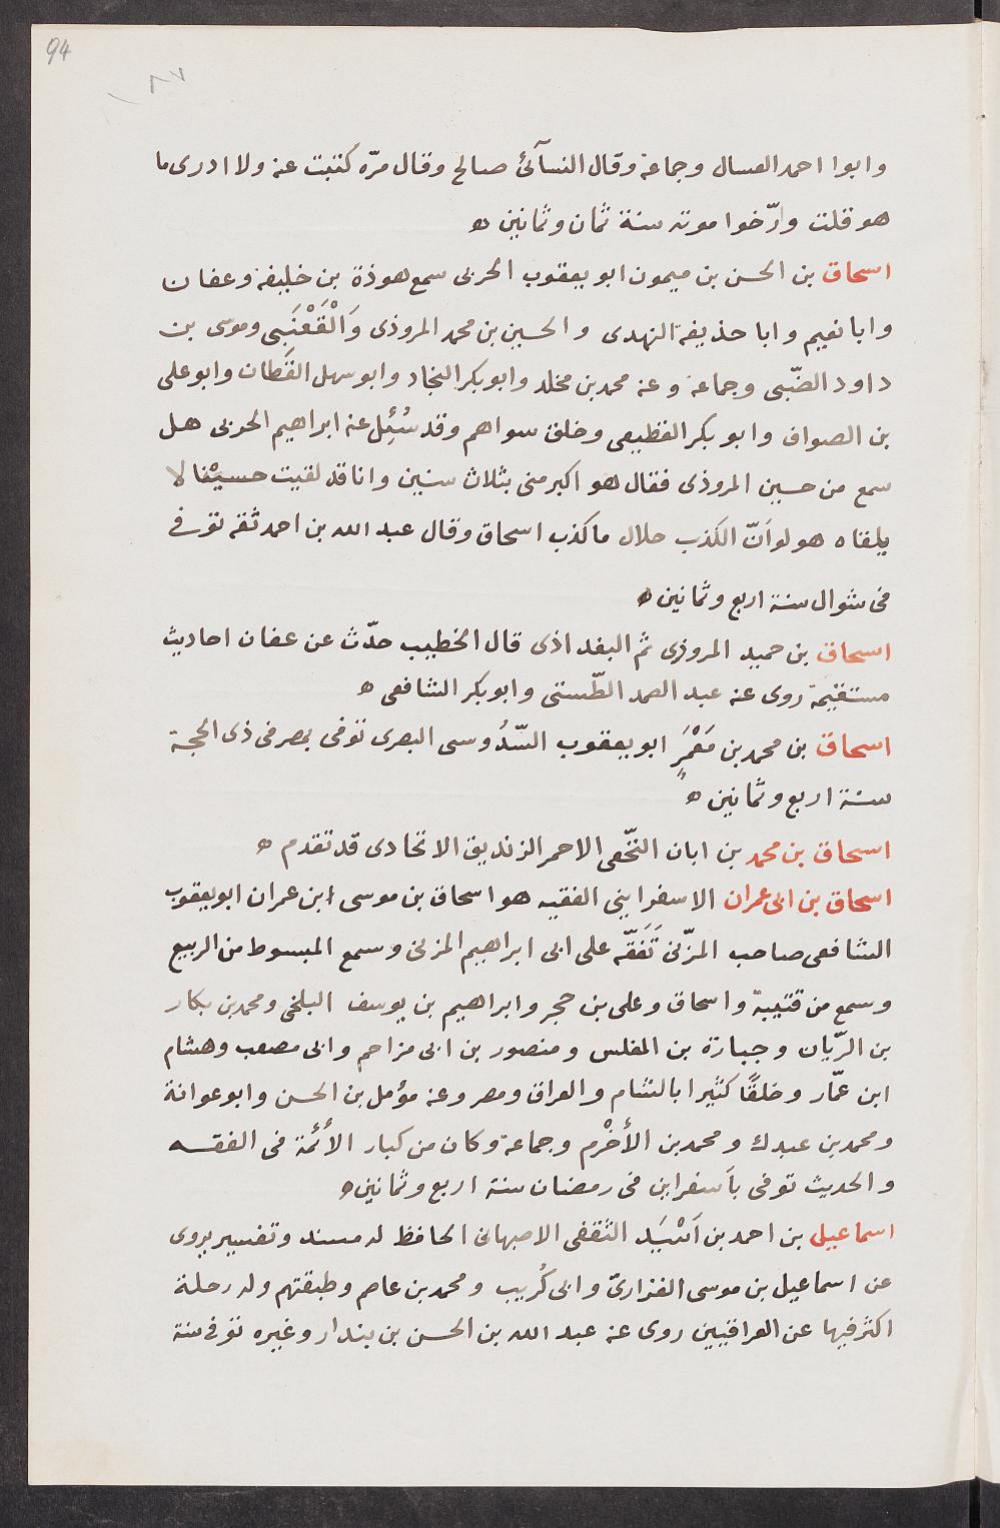 94
١٨٧
وابوا احمد العسال وجماعة وقال النسآئ صالح وقال مرّه كتبت عنه ولا ادرى ما
هو قلت ورّخوا موته سنة ثمان وثمانين ه
اسحاق بن الحسن بن ميمون ابو يعقوب الحربى سمع هوذة بن خليفة وعفان
وابا نعيم وابا حذيفة النهدى والحسين بن محمد المروذى وَالْقَعْنَبى وموسى بن
داود الضّبى وجماعة وعنه محمد بن مخلد وابو بكر النجاد وابو سهل القَطان وابو على
بن الصواف وابو بكر القطيعى وخلق سواهم وقد سُئِل عنه ابراهيم الحربى هل
سمع من حسين المروذى فقال هو اكبر منى بثلاث سنين وانا قد لقيت حسيْنا لا
يلقاه هو لو اَنّ الكذب حلال ما كذب اسحاق وقال عبد الله بن احمد ثقه توفى
فى شوال سنة اربع وثمانين ه
اسحاق بن حميد المروذى ثم البغداذى قال الخطيب حدّث عن عفان احاديث
مستقيمة روى عنه عبد الصمد الطّستى وابو بكر الشافعى ه
اسحاق بن محمد بن مَعْمَرٍ ابو يعقوب السّدُوسى البصرى توفى بمصر فى ذى الحجة
سنة اربع وثمانين ه
اسحاق بن محمد بن ابان النخّعى الاحمر الزنديق الاتحادى قد تقدم ه
اسحاق بن ابى عمران الاسفراينى الفقيه هو اسحاق بن موسى ابن عمران ابو يعقوب
الشافعى صاحب المزّنى تَفَقّه على ابى ابراهيم المزنى وسمع المبسوط من الربيع
وسمع من قتيبة واسحاق وعلى بن حجر وابراهيم بن يوسف البلخى ومحمد بن بكار
بن الرّيان وجبارة بن المغلس ومنصور بن ابى مزاحم وابى مصعب وهشام
ابن عمّار وخلقًا كثيرا بالشام والعراق ومصر وعنه مؤمل بن الحسن وابو عوانة
ومحمد بن عبدك ومحمد بن الأخْرم وجماعة وكان من كبار الأئمة فى الفقه
والحديث توفى باَسفراين فى رمضان سنة اربع وثمانين ه
اسماعيل بن احمد بن اَسْيَد الثقفى الاصبهانى الحافظ له مسند وتفسير يروى
عن اسماعيل بن موسى الفزارىّ وابى كُريب ومحمد بن عاصم وطبقتهم وله رحلة
اكثر فيها عن العراقيين روى عنه عبد الله بن الحسن بن بندار وغيره توفى سنة